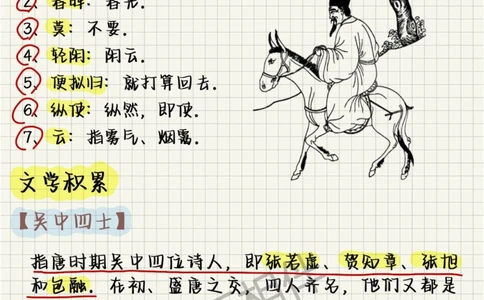 2、春晖：春光.
3、莫：不要.
4、轻阴：阴云.
5、便拟归：就打算回去.
6、纵使：纵然，即使.
7、云：指雾气、烟霭.
文学积累
【吴中四士】
指唐时期吴中四位诗人，即张若虚、贺知章、张旭
和包融．在初、盛唐之交，四人齐名，他们又都是